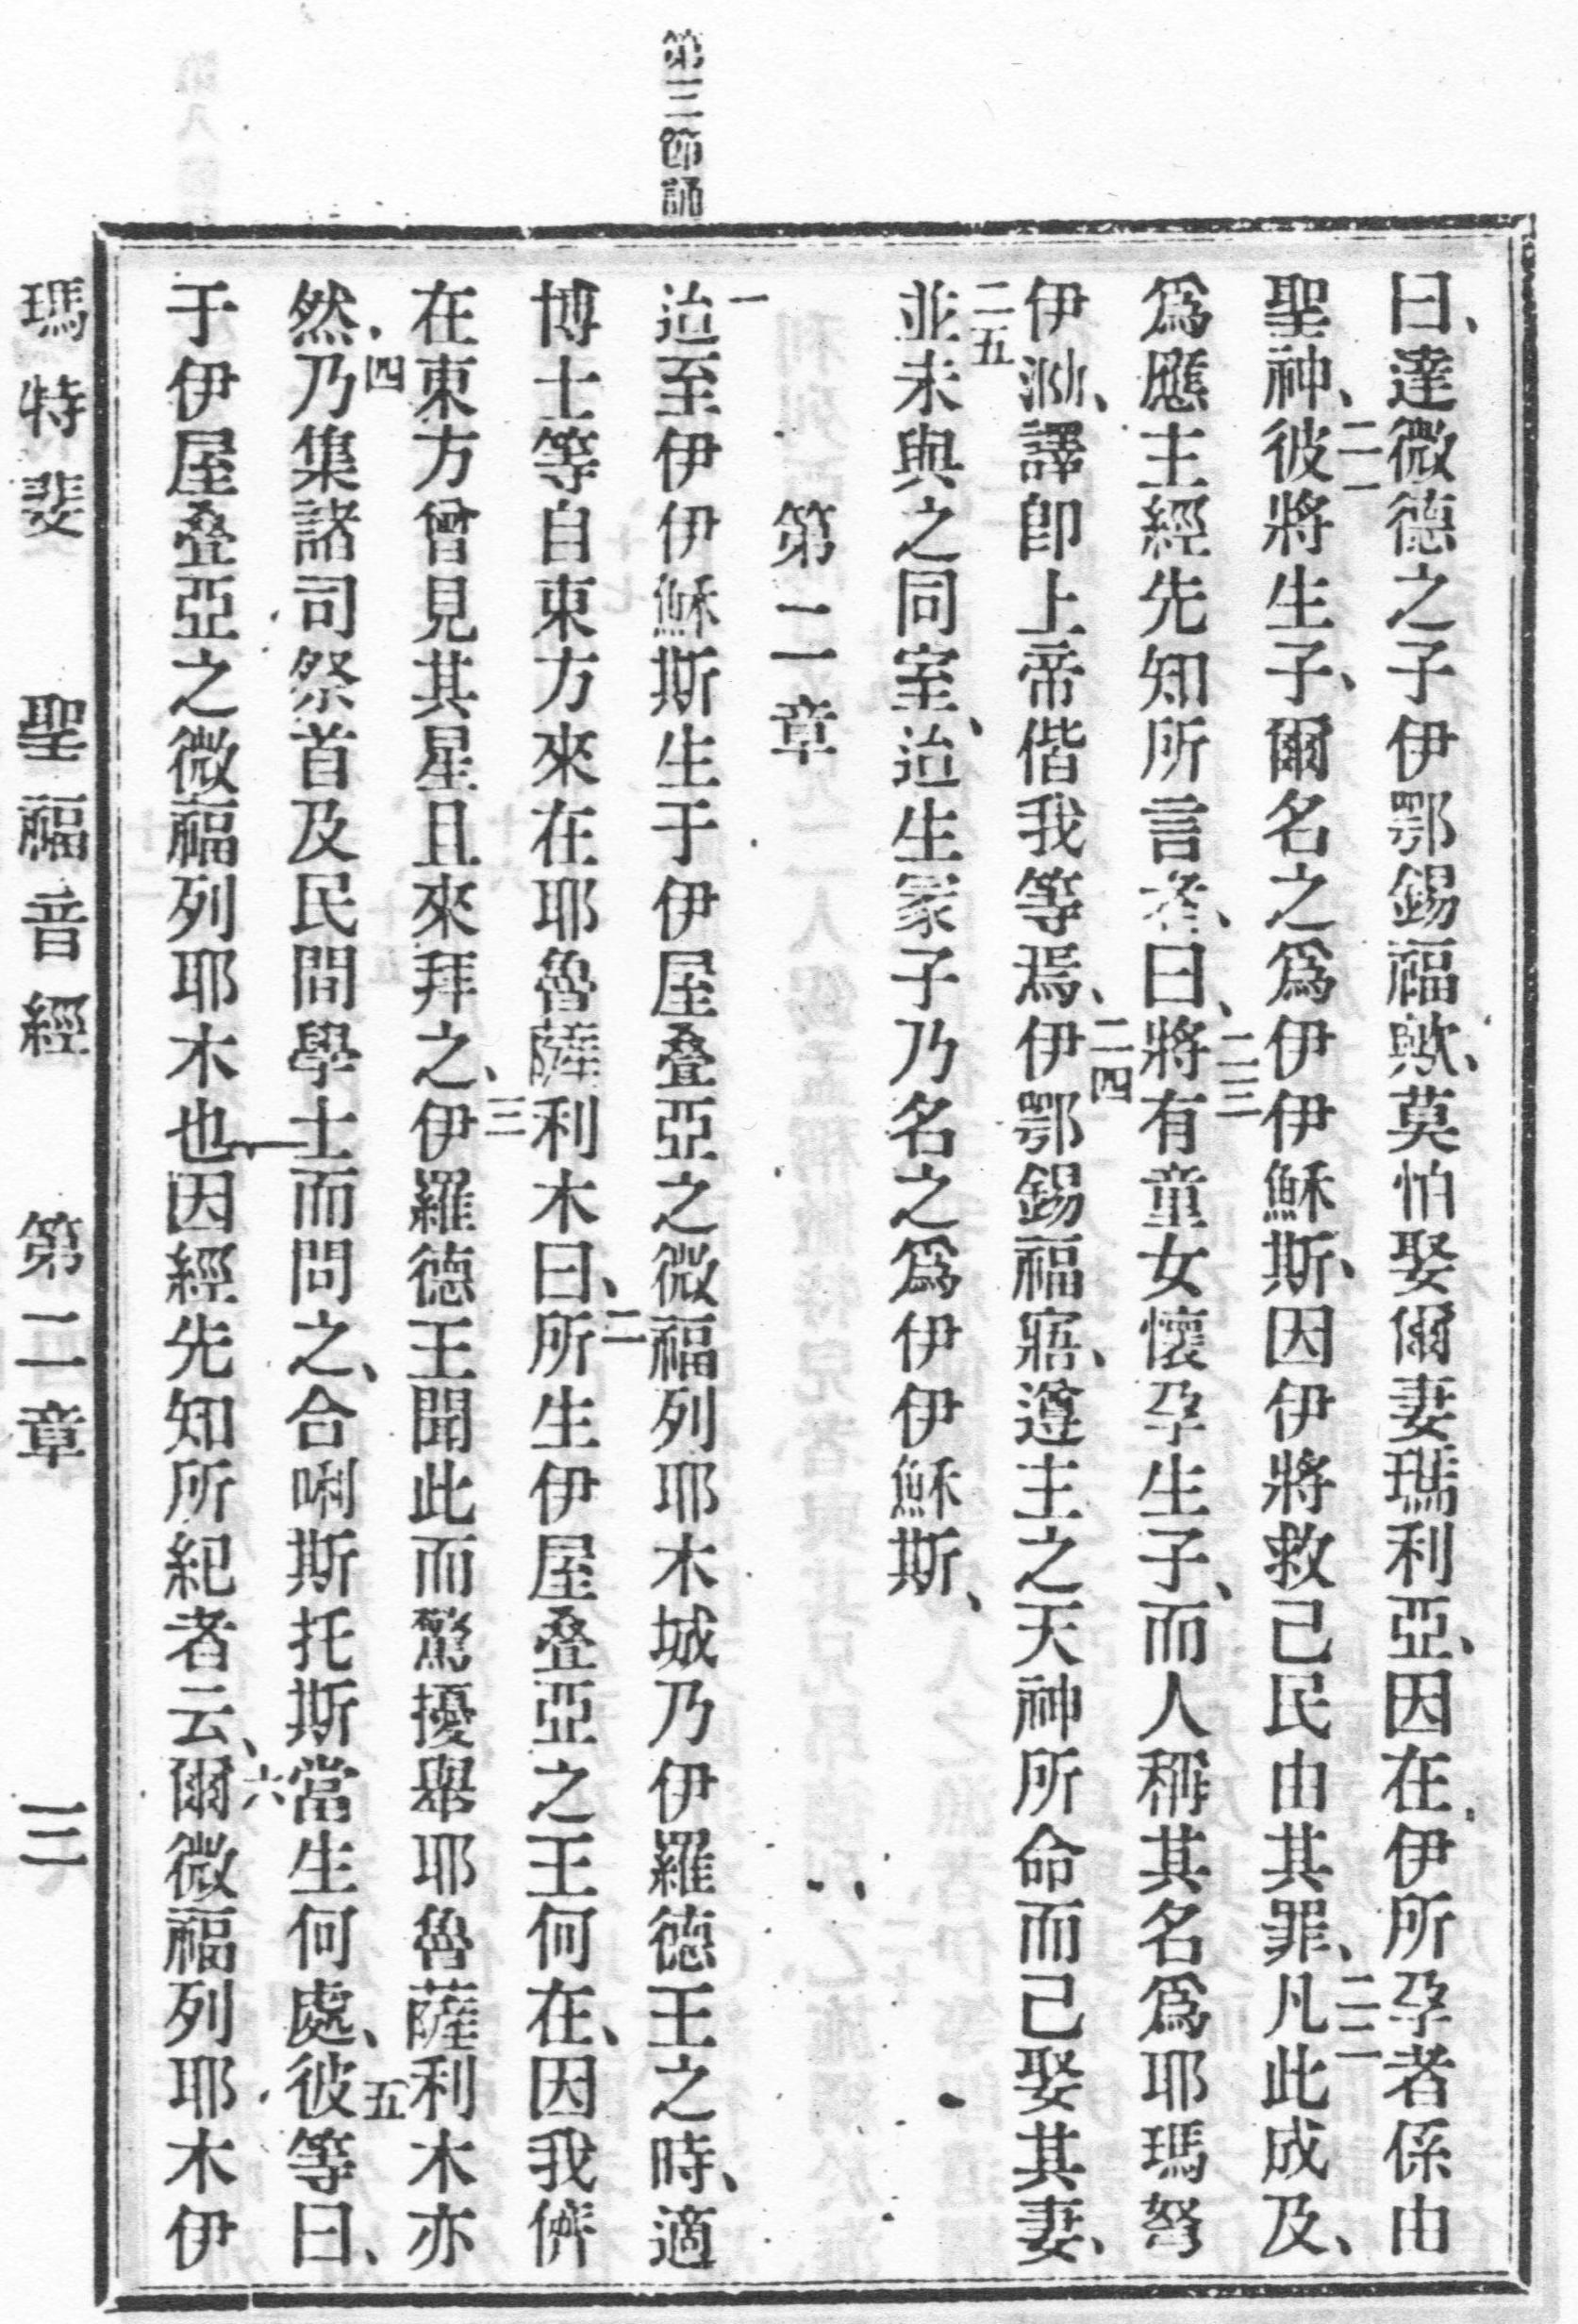 第三節誦
曰、達微德之子伊鄂錫福歟、莫怕娶爾妻瑪利亞、因在伊所孕者係由
聖神、二一彼將生子、爾名之爲伊伊穌斯、因伊將救己民由其罪、二二凡此成及、
爲應主經先知所言者、曰、二三將有童女懷孕生子、而人稱其名爲耶瑪弩
伊泐、譯卽上帝偕我等焉、二四伊鄂錫福寤、遵主之天神所命而己娶其妻、
二五並未與之同室、迨生冢子乃名之爲伊伊穌斯、
第二章
一迨至伊伊穌斯生于伊屋叠亞之微福列耶木城乃伊羅德王之時、適
博士等自東方來在耶魯薩利木曰、二所生伊屋叠亞之王何在、因我儕
在東方曾見其星且來拜之、三伊羅德王聞此而驚擾舉耶魯薩利木亦
然、四乃集諸司祭首及民間學士而問之、合唎斯托斯當生何處、五彼等曰、
于伊屋叠亞之微福列耶木也因經先知所紀者云、六爾微福列耶木伊
瑪特斐 聖福音經 第二章 三